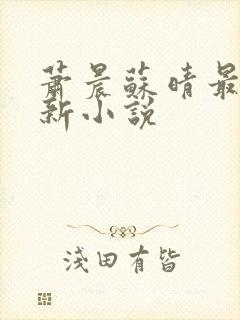 蕭晨蘇晴最
新小說
淺田有皆